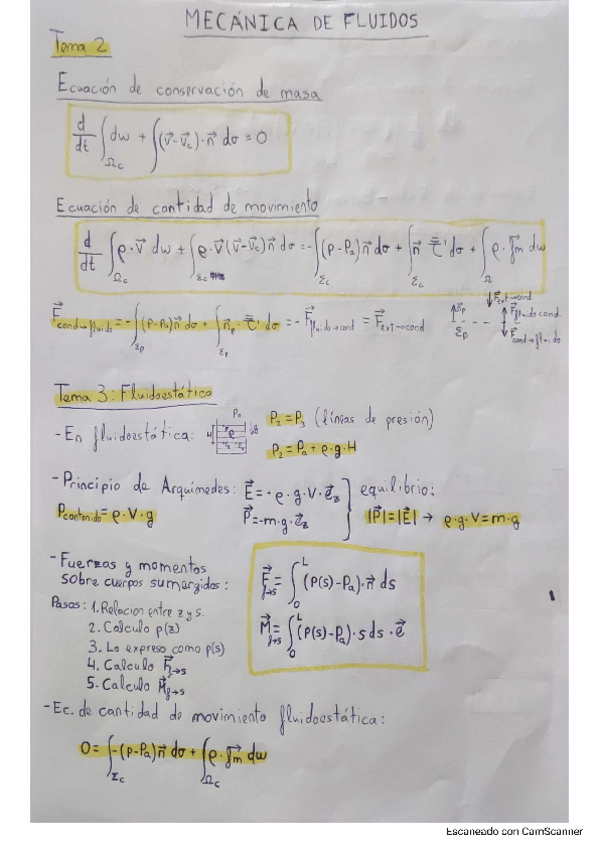 MECÁNICA DE FLUIDOS
Tema 2
Ecuación de conservación de masa
d/dt ∫_Ωc dw + ∫(v⃗-v⃗c)·n⃗ dσ = 0
Ecuación de cantidad de movimiento
d/dt ∫_Ωc ρ·v⃗ dw + ∫_Σc ρ·v⃗(v⃗-v⃗c)n⃗ dσ = -∫_Σc (p-Pa)n⃗ dσ + ∫_Σc n⃗ τ̿' dσ + ∫_Ω ρ·f⃗m dw
F⃗ cond→fluido = -∫_Σp (p-Pa)n⃗ dσ + ∫_Σp n⃗p·τ̿' dσ = -F⃗ fluido→cond = F⃗ ext→cond
F⃗ ext→cond
n⃗p
Σp
F⃗ fluido cond
F⃗ cond→fluido
Tema 3: Fluidoestática
-En fluidoestática:
Pa
H
ρ
P2 = P3 (líneas de presión)
P2 = Pa + ρ·g·H
-Principio de Arquímedes: E⃗ = + ρ·g·V·e⃗z
P⃗ = -m·g·e⃗z
equilibrio:
Pcontenido = ρ·V·g
|P⃗| = |E⃗| → ρ·g·V = m·g
-Fuerzas y momentos
sobre cuerpos sumergidos:
F⃗ f→s = ∫_0^L (p(s)-Pa)·n⃗ ds
M⃗ f→s = ∫_0^L (p(s)-Pa)·s ds·e⃗
Pasos: 1. Relacion entre z y s.
2. Calculo p(z)
3. Lo expreso como p(s)
4. Calculo F⃗ f→s
5. Calculo M⃗ f→s
-Ec. de cantidad de movimiento fluidoestática:
0 = ∫_Σc -(p-Pa)n⃗ dσ + ∫_Ωc ρ·f⃗m dw
Escaneado con CamScanner